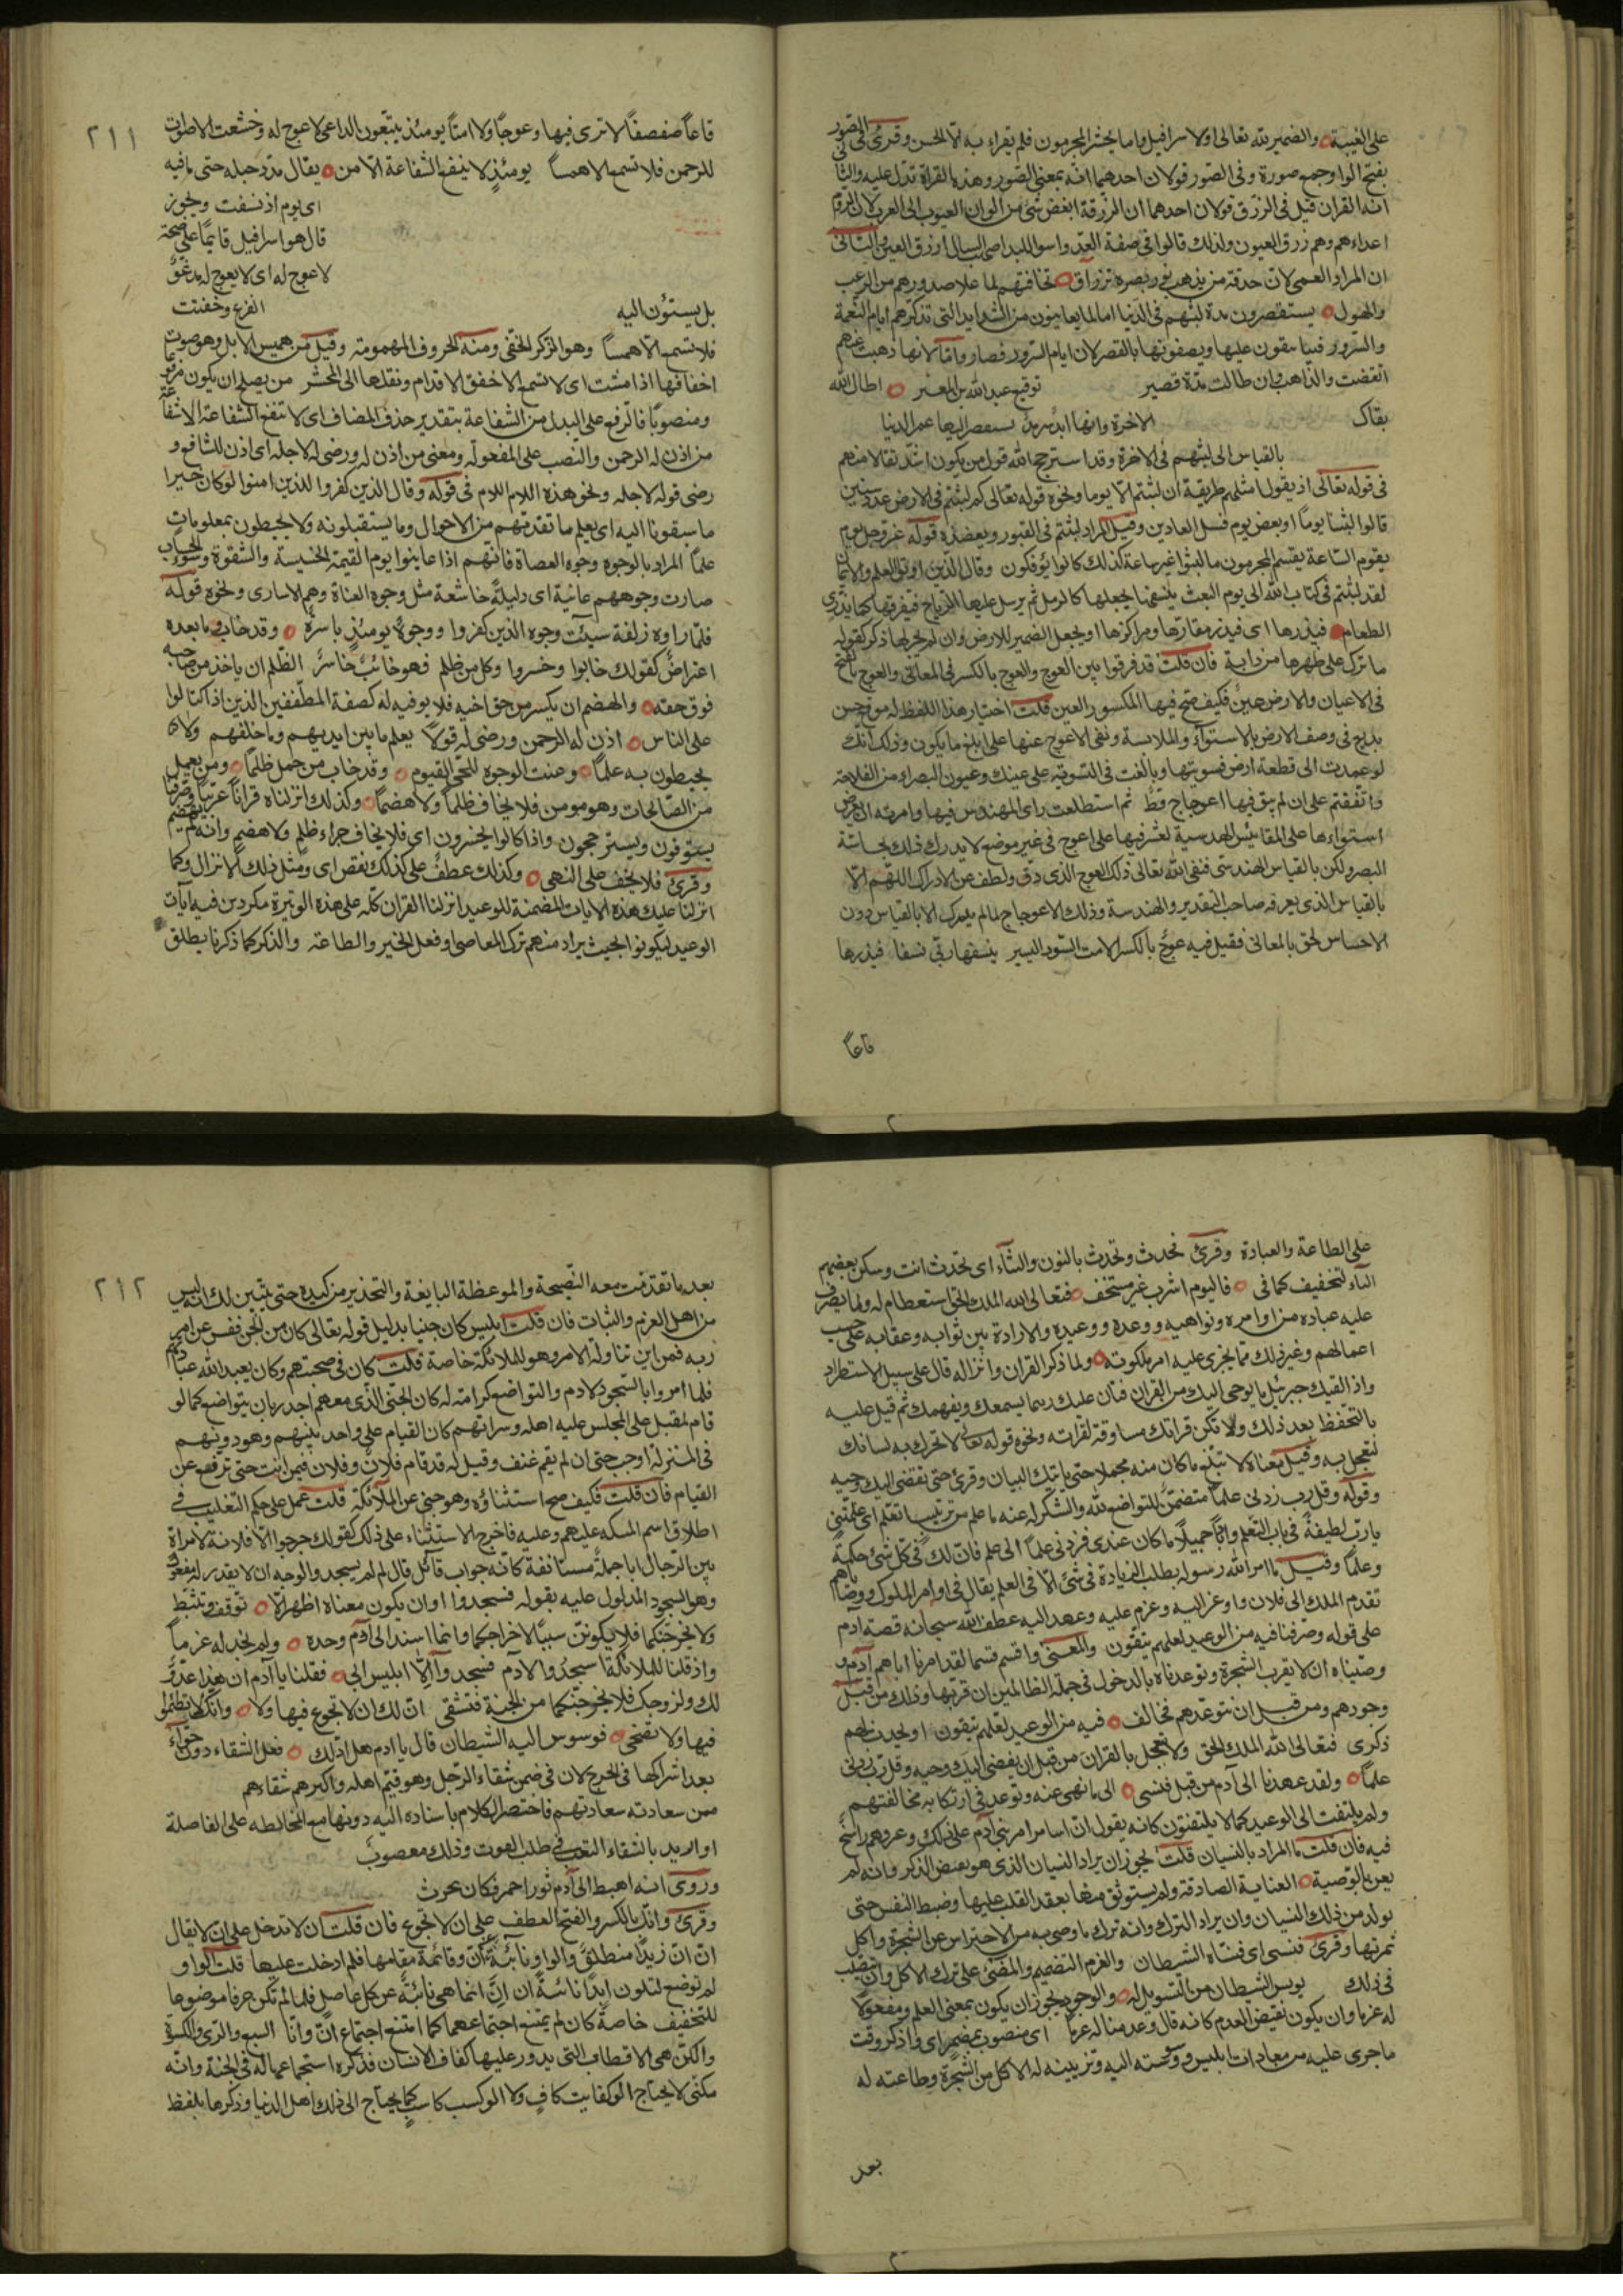 على الغيبة والضمير لله تعالى او لاسرافيل واما يحشر المجرمون فلم يقراء به الا الحسن وقرئ فى الصور
بفتح الواو جمع صورة وفى الصور قولان احدهما انه بمعنى الصور وهذه القراة تدل عليه والثا
انه القران قيل فى الزرق قولان احدهما ان الزرقة ابغض شئ من الوان العيون الى العرب لان الروم
اعداءهم وهم زرق العيون ولذلك قالوا فى صفة العدو اسود الكبد اصهب السبال ازرق العين والثانى
ان المراد العمى لان حدقة من يذهب نور بصره تزراق تخافتهم لما علا صدورهم من الرعب
والهول يستقصرون مدة لبثهم فى الدنيا اما لما يعاينون من الشدايد التى تذكرهم ايام النعمة
والسرور فيتاسفون عليها ويصفونها بالقصر لان ايام السرور قصار واما لانها ذهبت عنهم
انقضت والذاهب وان طالت مدته قصير توقيع عبد الله بن المعتز اطال الله
بقاك الاخرة وانها ابد سرمد يستقصر اليها عمر الدنيا
بالقياس الى لبثهم فى الاخرة وقد استرجح الله قول من يكون اشد تقالا منهم
فى قوله تعالى اذ يقول امثلهم طريقة ان لبثتم الا يوما ونحوه قوله تعالى كم لبثتم فى الارض عدد سنين
قالوا لبثنا يوما او بعض يوم فسئل العادين وقيل المراد لبثتم فى القبور ويعضده قوله عز وجل ويوم
يقوم الساعة يقسم المجرمون ما لبثوا غير ساعة كذلك كانوا يؤفكون وقال الذين اوتوا العلم والايمان
لقد لبثتم فى كتاب الله الى يوم البعث ينسفها يجعلها كالرمل ثم يرسل عليها الرياح فيفرقها كما يذرى
الطعام فيذرها اى فيذر مقارها ومراكزها او يجعل الضمير للارض وان لم يجر لها ذكر كقوله
ما ترك على ظهرها من دابة فان قلت قد فرقوا بين العوج والعوج بالكسر فى المعانى والعوج بالفتح
فى الاعيان والارض عين فكيف صح فيها المكسور العين قلت اختيار هذا اللفظ له موقع حسن
بديع فى وصف الارض بالاستوآء والملاسة ونفى الاعوج عنها على ابلغ ما يكون وذلك انك
لو عمدت الى قطعة ارض فسويتها وبالغت فى التسوية على عينك وعيون البصراء من الفلاحة
واتفقتم على ان لم يبق فيها اعوجاج قط ثم استطلعت راى المهندس فيها وامرته ان يعرض
استواءها على المقائيس الهندسية لعثر فيها على اعوج فى غير موضع لا يدرك ذلك بحاسة
البصر ولكن بالقياس الهندسى فنفى الله تعالى ذلك العوج الذى دق ولطف عن الادراك اللهم الا
بالقياس الذى يعرفه صاحب التقدير والهندسة وذلك الاعوجاج لما لم يدرك الا بالقياس دون
الاحساس لحق بالمعانى فقيل فيه عوج بالكسر الامت النتو اليسير ينسفها ربى نسفا فيذرها
قاعا
٢١١
قاعا صفصفا لا ترى فيها وعوجا ولا امتا يومئذ يتبعون الداعى لا عوج له وخشعت الاصوات
للرحمن فلا تسمع الا همسا يومئذ لا ينفع الشفاعة الا من يقال مدد حبله حتى ما فيه
اى يوم اذ نسفت ويجوز
قال هو اسرافيل قايما على صخرة
لا عوج له اى لا يعوج له مدعو
بل يستوون اليه الفزع وخفتت
فلا تسمع الا همسا وهو الزكر الخفى ومنه الحروف المهمومة وقيل من هميس الابل وهو صوت
اخفافها اذا مشت اى لا تسمع الا خفق الاقدام ونقلها الى المحشر من يصلح ان يكون مرفوعا
ومنصوبا فالرفع على البدل من الشفاعة بتقدير حذف المضاف اى لا تنفع الشفاعة الا شفاعة
من اذن له الرحمن والنصب على المفعولية ومعنى من أذن له ورضى له لاجله اى اذن للشافع و
رضى قوله لاجله ونحو هذه اللام اللام فى قوله وقال الذين كفروا للذين امنوا لو كان خيرا
ما سبقونا اليه اى يعلم ما تقدمهم من الاحوال وما يستقبلونه ولا يحيطون بمعلومات
علما المراد بالوجوه وجوه العصاة فانهم اذا عاينوا يوم القيمة الخيسة والشقوة وسوء الحساب
صارت وجوههم عانية اى ذليلة خاشعة مثل وجوه العناة وهم الاسارى ونحوه قوله
فلما راوه زلفة سيئت وجوه الذين كفروا ووجوه يومئذ باسرة وقد خاب وما بعده
اعتراض كقولك خابوا وخسروا وكل من ظلم فهو خائب خاسر الظلم ان ياخذ من صاحبه
فوق حقه والهضم ان يكسر من حق اخيه فلا يوفيه له كصفة المطففين الذين اذا اكتالوا
على الناس اذن له الرحمن ورضى له قولا يعلم ما بين ايديهم وما خلفهم ولا
يحيطون به علما وعنت الوجوه للحى القيوم وقد خاب من حمل ظلما ومن يعمل
من الصالحات وهو مومن فلا يخاف ظلما ولا هضما وكذلك انزلناه قرانا عربيا وصرفنا
يستوفون ويسترجحون واذا كالوا يخسرون اى فلا يخاف جزاء ظلم ولا هضم وانه لم يهضم
وقرئ فلا يخف على النهى وكذلك عطف على كذلك نقص اى ومثل ذلك الانزال وكما
انزلنا عليك هذه الايات المضمنة للوعيد انزلنا القران كله على هذه الوتيرة مكررين فيه ايات
الوعيد ليكونوا بحيث يراد منهم ترك المعاصى او فعل الخير والطاعة والذكر كما ذكرنا يطلق
على الطاعة والعبادة وقرئ نحدث وتحدث بالنون والتاء اى تحدث انت وسكن بعضهم
الثاء للتخفيف كما فى فاليوم اشرب غير مستحقب فتعالى الله الملك الحق استعظام له ولما يصرف
عليه عباده من اوامره ونواهيه ووعده ووعيده والارادة بين ثوابه وعقابه على حسب
اعمالهم وغير ذلك مما يجرى عليه امر ملكوته ولما ذكر القران وانزاله قال على سبيل الاستطراد
واذا لقيك جبرئيل ما يوحى اليك من القران فتأن عليك ريما يسمعك ويفهمك ثم قبل عليه
بالتحفظ بعد ذلك ولا تكن قراتك مساوقة لقراته ونحوه قوله تعالى لا تحرك به لسانك
لتعجل به وقيل معناه لا تبلغ ما كان منه مجملا حتى ياتيك البيان وقرئ حتى نقضى اليك وحيه
وقوله وقل رب زدنى علما متضمن للتواضع لله والشكر له عند ما علم من ترتيب التعلم اى علمتنى
يا رب لطيفة فى باب التعلم وادبا جميلا ما كان عندى فزدنى علما الى علم فان لك فى كل شئ حكمة
وعلما وقيل ما امر الله رسوله بطلب الزيادة فى شئ الا فى العلم يقال فى اوامر الملوك ووصاياهم
تقدم الملك الى فلان واوعز اليه وعزم عليه وعهد اليه عطف الله سبحانه قصة آدم
على قوله وصرفنا فيه من الوعيد لعلهم يتقون والمعنى واقسم قسما لقد امرنا اباهم آدم و
وصيناه ان لا يقرب الشجرة وتوعدناه بالدخول فى جملة الظالمين ان قربها وذلك من قبل
وجودهم ومن قبل ان نتوعدهم فخالف فيه من الوعيد لعلهم يتقون او يحدث لهم
ذكرى فتعالى الله الملك الحق ولا تعجل بالقران من قبل ان يقضى اليك وحيه وقل رب زدنى
علما ولقد عهدنا الى آدم من قبل فنسى الى ما نهى عنه وتوعد فى ارتكابه مخالفتهم
ولم يلتفت الى الوعيد كما لا يلتفتون كانه يقول ان اساس امر بنى آدم على ذلك وعرقهم راسخ
فيه فان قلت ما المراد بالنسيان قلت يجوز ان يراد النسيان الذى هو نقيض الذكر وانه لم
يعن بالوصية العناية الصادقة ولم يستوثق منها بعقد القلب عليها وضبط النفس حتى
تولد من ذلك النسيان وان يراد الترك وانه ترك ما وصى به من الاحتراس عن الشجرة واكل
ثمرتها وقرئ فنسى اى فنساه الشيطان والعزم التصميم والمضى على ترك الاكل وان يتصلب
فى ذلك يويس الشيطان من التسويل له والوجود يجوز ان يكون بمعنى العلم ومفعولا
له عزما وان يكون نقيض العدم كانه قال وعدمنا له عزما اى منصوب بمضمر اى واذكر وقت
ما جرى عليه من معادات ابليس ووسوسته اليه وتزيينه له الاكل من الشجرة وطاعته له
بعد
٢١٢
بعد ما تقدمت معه النصيحة والموعظة البايغة والتحذير من كيده حتى يتبين لك انه ليس
من اهل العزم والثبات فان قلت ابليس كان جنيا بدليل قوله تعالى كان من الجن ففسق عن امر
ربه فمن اين تناوله الامر وهو للملائكة خاصة قلت كان فى صحبتهم وكان يعبد الله عبادتهم
فلما امروا بالسجود لادم والتواضع كرامة له كان الجنى الذى معهم اجدر بان يتواضع كما لو
قام لمقبل على المجلس عليه اهله وسراتهم كان القيام على واحد بينهم وهو دونهم
فى المنزلة اوجب حتى ان لم يقم عنف وقيل له قد قام فلان وفلان فمن انت حتى ترفع عن
القيام فان قلت فكيف صح استثناؤه وهو جنى عن الملآئكة قلت عمل على حكم التغليب فى
اطلاق اسم الملئكة عليهم وعليه فاخرج الاستثناء على ذلك كقولك خرجوا الا فلانة لامراة
بين الرجال ابا جملة مستانفة كانه جواب قائل قال لم لم يسجد والوجه ان لا يقدر له مفعول
وهو السجود المدلول عليه بقوله فسجدوا وان يكون معناه اظهر الا توقف وتثبط
ولا يخرجنكما فلا يكونن سببا لاخراجكما وانما اسند الى آدم وحده ولم نجد له عزما
واذ قلنا للملائكة اسجدوا لادم فسجدوا الا ابليس ابى فقلنا يا آدم ان هذا عدو
لك ولزوجك فلا يخرجنكما من الجنة فتشقى ان لك ان لا تجوع فيها ولا وانك لا تظمؤا
فيها ولا تضحى فوسوس اليه الشيطان قال يا ادم هل ادلك فعل الشقاء دون حواء
بعد اشراكها فى الخرج لان فى ضمن شقاء الرجل وهو قيم اهله واكبرهم شقاءهم
ضمن سعادته سعادتهم فاختصر الكلام باسناده اليه دونها مع المحافظه على الفاصلة
او اريد بالشقاء التعب فى طلب القوت وذلك معصوب
وروى انه اهبط الى آدم ثور احمر فكان يحرث
وقرئ وانك بالكسر والفتح العطف على ان لا تجوع فان قلت ان لا تدخل على ان لا يقال
ان ان زيدا منطلق والواو نائبة عن ان وقائمة مقامها فلم ادخلت عليها قلت الواو
لم توضع لتكون ابدا نائبة عن ان انما هى نائبة عن كل عامل فلما لم تكن حرفا موضوعا
للتحقيق خاصة كان لم يمتنع اجتماعهما كما امتنع اجتماع ان وان الشبع والرى والكسوة
والكن هى الاقطاب التى يدور عليها كفاف الانسان فذكره استجماعها له فى الجنة وانه
مكفى لا يحتاج الى كفايت كاف ولا الى كسب كاسب كما يحتاج الى ذلك اهل الدنيا وذكرها بلفظ